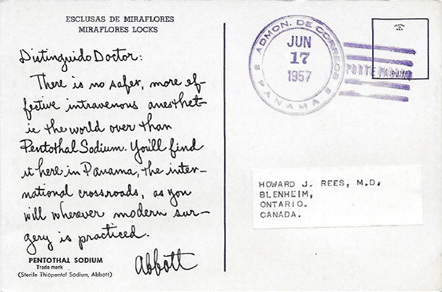 ESCLUSAS DE MIRAFLORES
MIRAFLORES LOCKS
Distinguido Doctor:
There is no safer, more ef-
fective intravenous anesthet-
ic the world over than
Pentothal Sodium. You'll find
it here in Panama, the inter-
national crossroads, as you
will wherever modern sur-
gery is practiced.
Abbott
PENTOTHAL SODIUM
Trade mark
(Sterile Thiopental Sodium, Abbott)
ADMON. DE CORREOS
JUN
17
1957
PANAMA
PORTE PAGADO
HOWARD J. REES, M.D.
BLENHEIM,
ONTARIO.
CANADA.